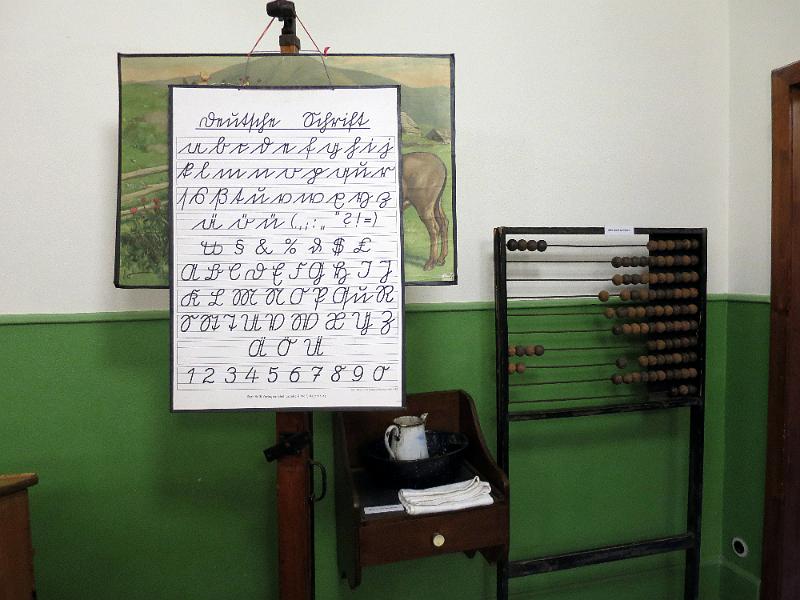 Deutsche Schrift
a b c d e f g h i j
k l m n o p q u r
ſ s ß t u v w x y z
ä ö ü (.,;:„ “ ? ! =)
§ & % $ £
A B C D E F G H I J
K L M N O P Q u R
S St T U V W X Y Z
Ä Ö Ü
1 2 3 4 5 6 7 8 9 0